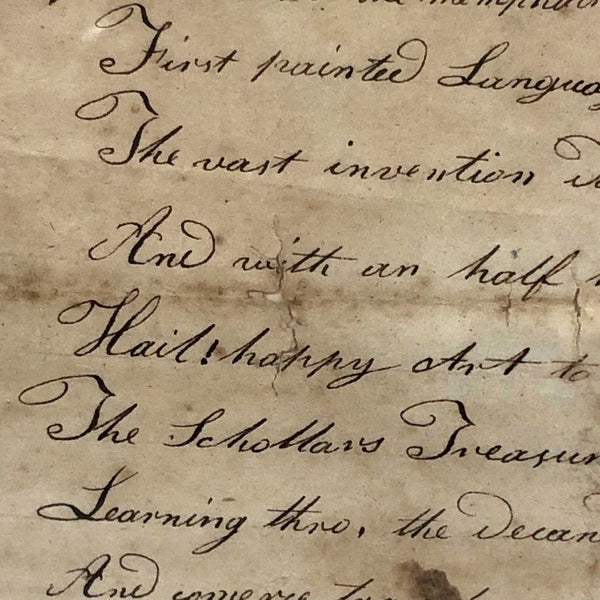 the memphia
First painted Langua
The vast invention
And with an half
Hail! happy Art to
The Schollars Treasur
Learning thro, the
And